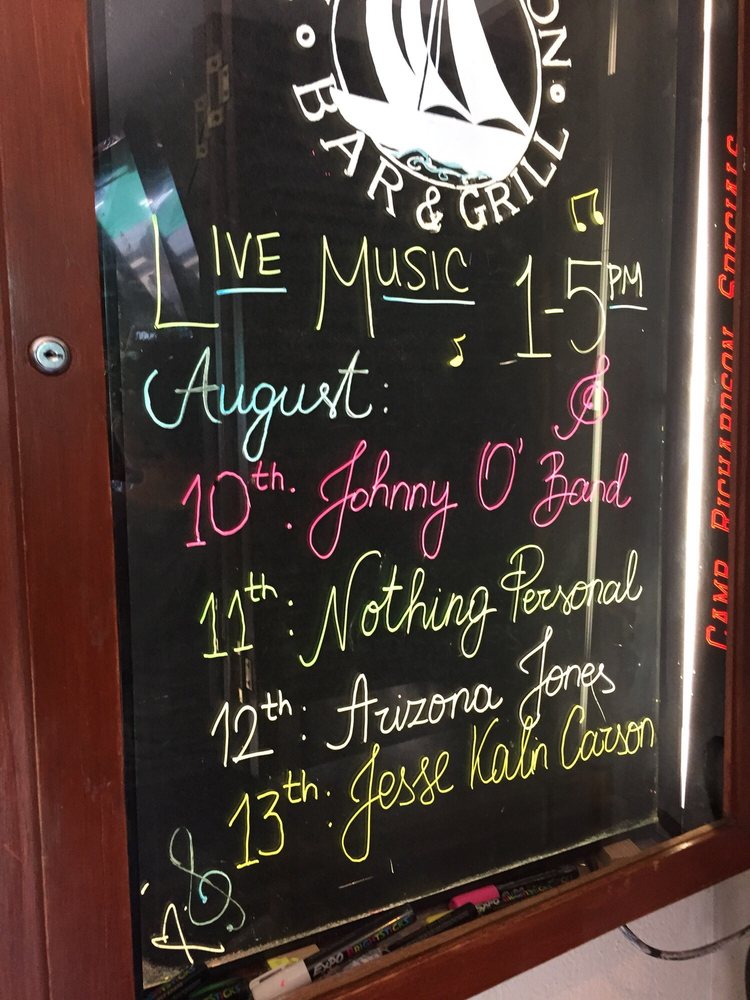 ON
BAR & GRILL
LIVE MUSIC 1-5PM
August:
10th: Johnny O' Band
11th: Nothing Personal
12th: Arizona Jones
13th: Jesse Kalin Carson
CAMP RICHARDSON SPECIALS
EXPO BRIGHTSTICKS
EXPO